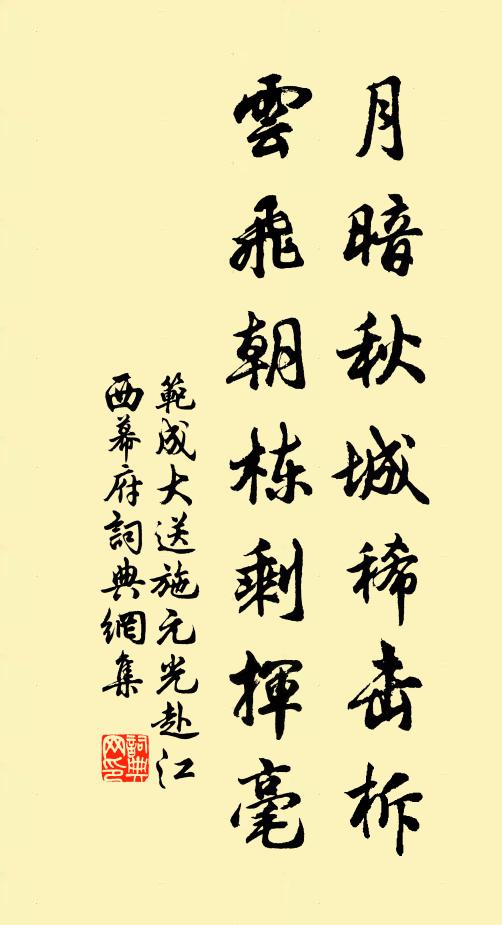 月暗秋城稀击柝
雲飛朝栋剩揮毫
範成大送施元光赴江
西幕府詞典網集
詞典网印